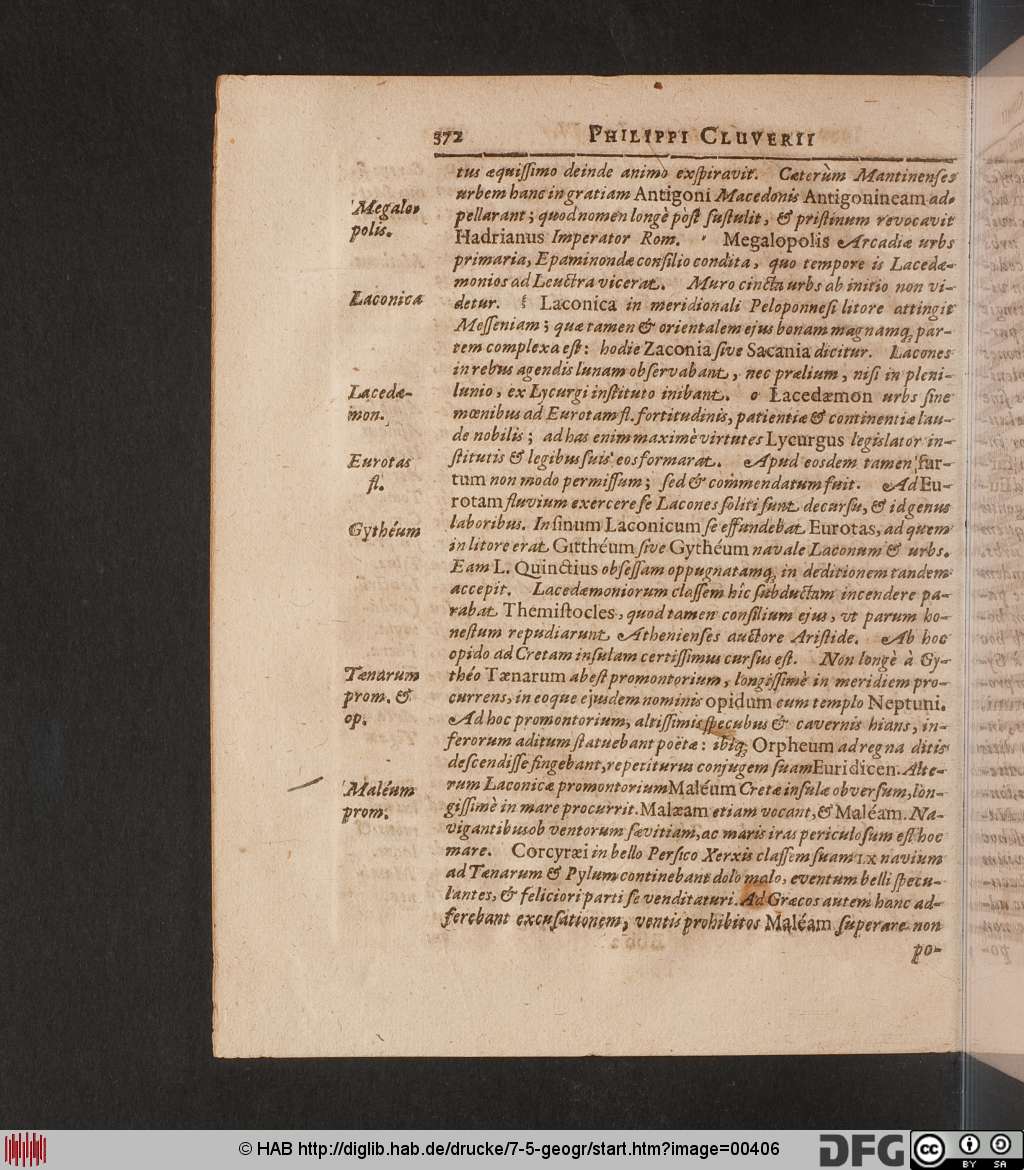 372 PHILIPPI CLUVERII
tus æquissimo deinde animo exspiravit. Cæterùm Mantinenses
urbem hanc in gratiam Antigoni Macedonis Antigonineam ad-
pellarant; quod nomen longè pòst sustulit, & pristinum revocavit
Megalo-
polis.
Hadrianus Imperator Rom. Megalopolis Arcadiæ urbs
primaria, Epaminondæ consilio condita, quo tempore is Lacedæ-
monios ad Leuctra vicerat. Muro cincta urbs ab initio non vi-
Laconica
detur. Laconica in meridionali Peloponnesi litore attingit
Messeniam; quæ tamen & orientalem ejus bonam magnamq; par-
tem complexa est: hodie Zaconia sive Sacania dicitur. Lacones
in rebus agendis lunam observabant, nec prælium, nisi in pleni-
Lacedæ-
mon.
lunio, ex Lycurgi instituto inibant. o Lacedæmon urbs sine
mœnibus ad Eurotam fl. fortitudinis, patientiæ & continentiæ lau-
de nobilis; ad has enim maximè virtutes Lycurgus legislator in-
Eurotas
fl.
stitutis & legibus suis eos formarat. Apud eosdem tamen fur-
tum non modo permissum; sed & commendatum fuit. Ad Eu-
rotam fluvium exercere se Lacones soliti sunt decursu, & id genus
Gythéum
laboribus. In sinum Laconicum se effundebat Eurotas, ad quem
in litore erat Gitthéum sive Gythéum navale Laconum & urbs.
Eam L. Quinctius obsessam oppugnatamq; in deditionem tandem
accepit. Lacedæmoniorum classem hîc subductam incendere pa-
rabat Themistocles, quod tamen consilium ejus, vt parum ho-
nestum repudiarunt Athenienses auctore Aristide. Ab hoc
opido ad Cretam insulam certissimus cursus est. Non longè à Gy-
Tænarum
prom. &
op.
théo Tænarum abest promontorium, longissimè in meridiem pro-
currens, in eoque ejusdem nominis opidum cum templo Neptuni.
Ad hoc promontorium, altissimis specubus & cavernis hians, in-
ferorum aditum statuebant poëtæ: ibiq; Orpheum ad regna ditis
descendisse fingebant, repetiturus conjugem suam Euridicen. Alte-
Maléum
prom.
rum Laconicæ promontorium Maléum Cretæ insulæ obversum, lon-
gissimè in mare procurrit. Malæam etiam vocant, & Maléam. Na-
vigantibus ob ventorum sævitiam, ac maris iras periculosum est hoc
mare. Corcyræi in bello Persico Xerxis classem suam LX navium
ad Tænarum & Pylum continebant dolo malo, eventum belli specu-
lantes, & feliciori parti se venditaturi. Ad Græcos autem hanc ad-
ferebant excusationem, ventis prohibitos Maléam superare non
po-
© HAB http://diglib.hab.de/drucke/7-5-geogr/start.htm?image=00406 DFG
cc BY SA